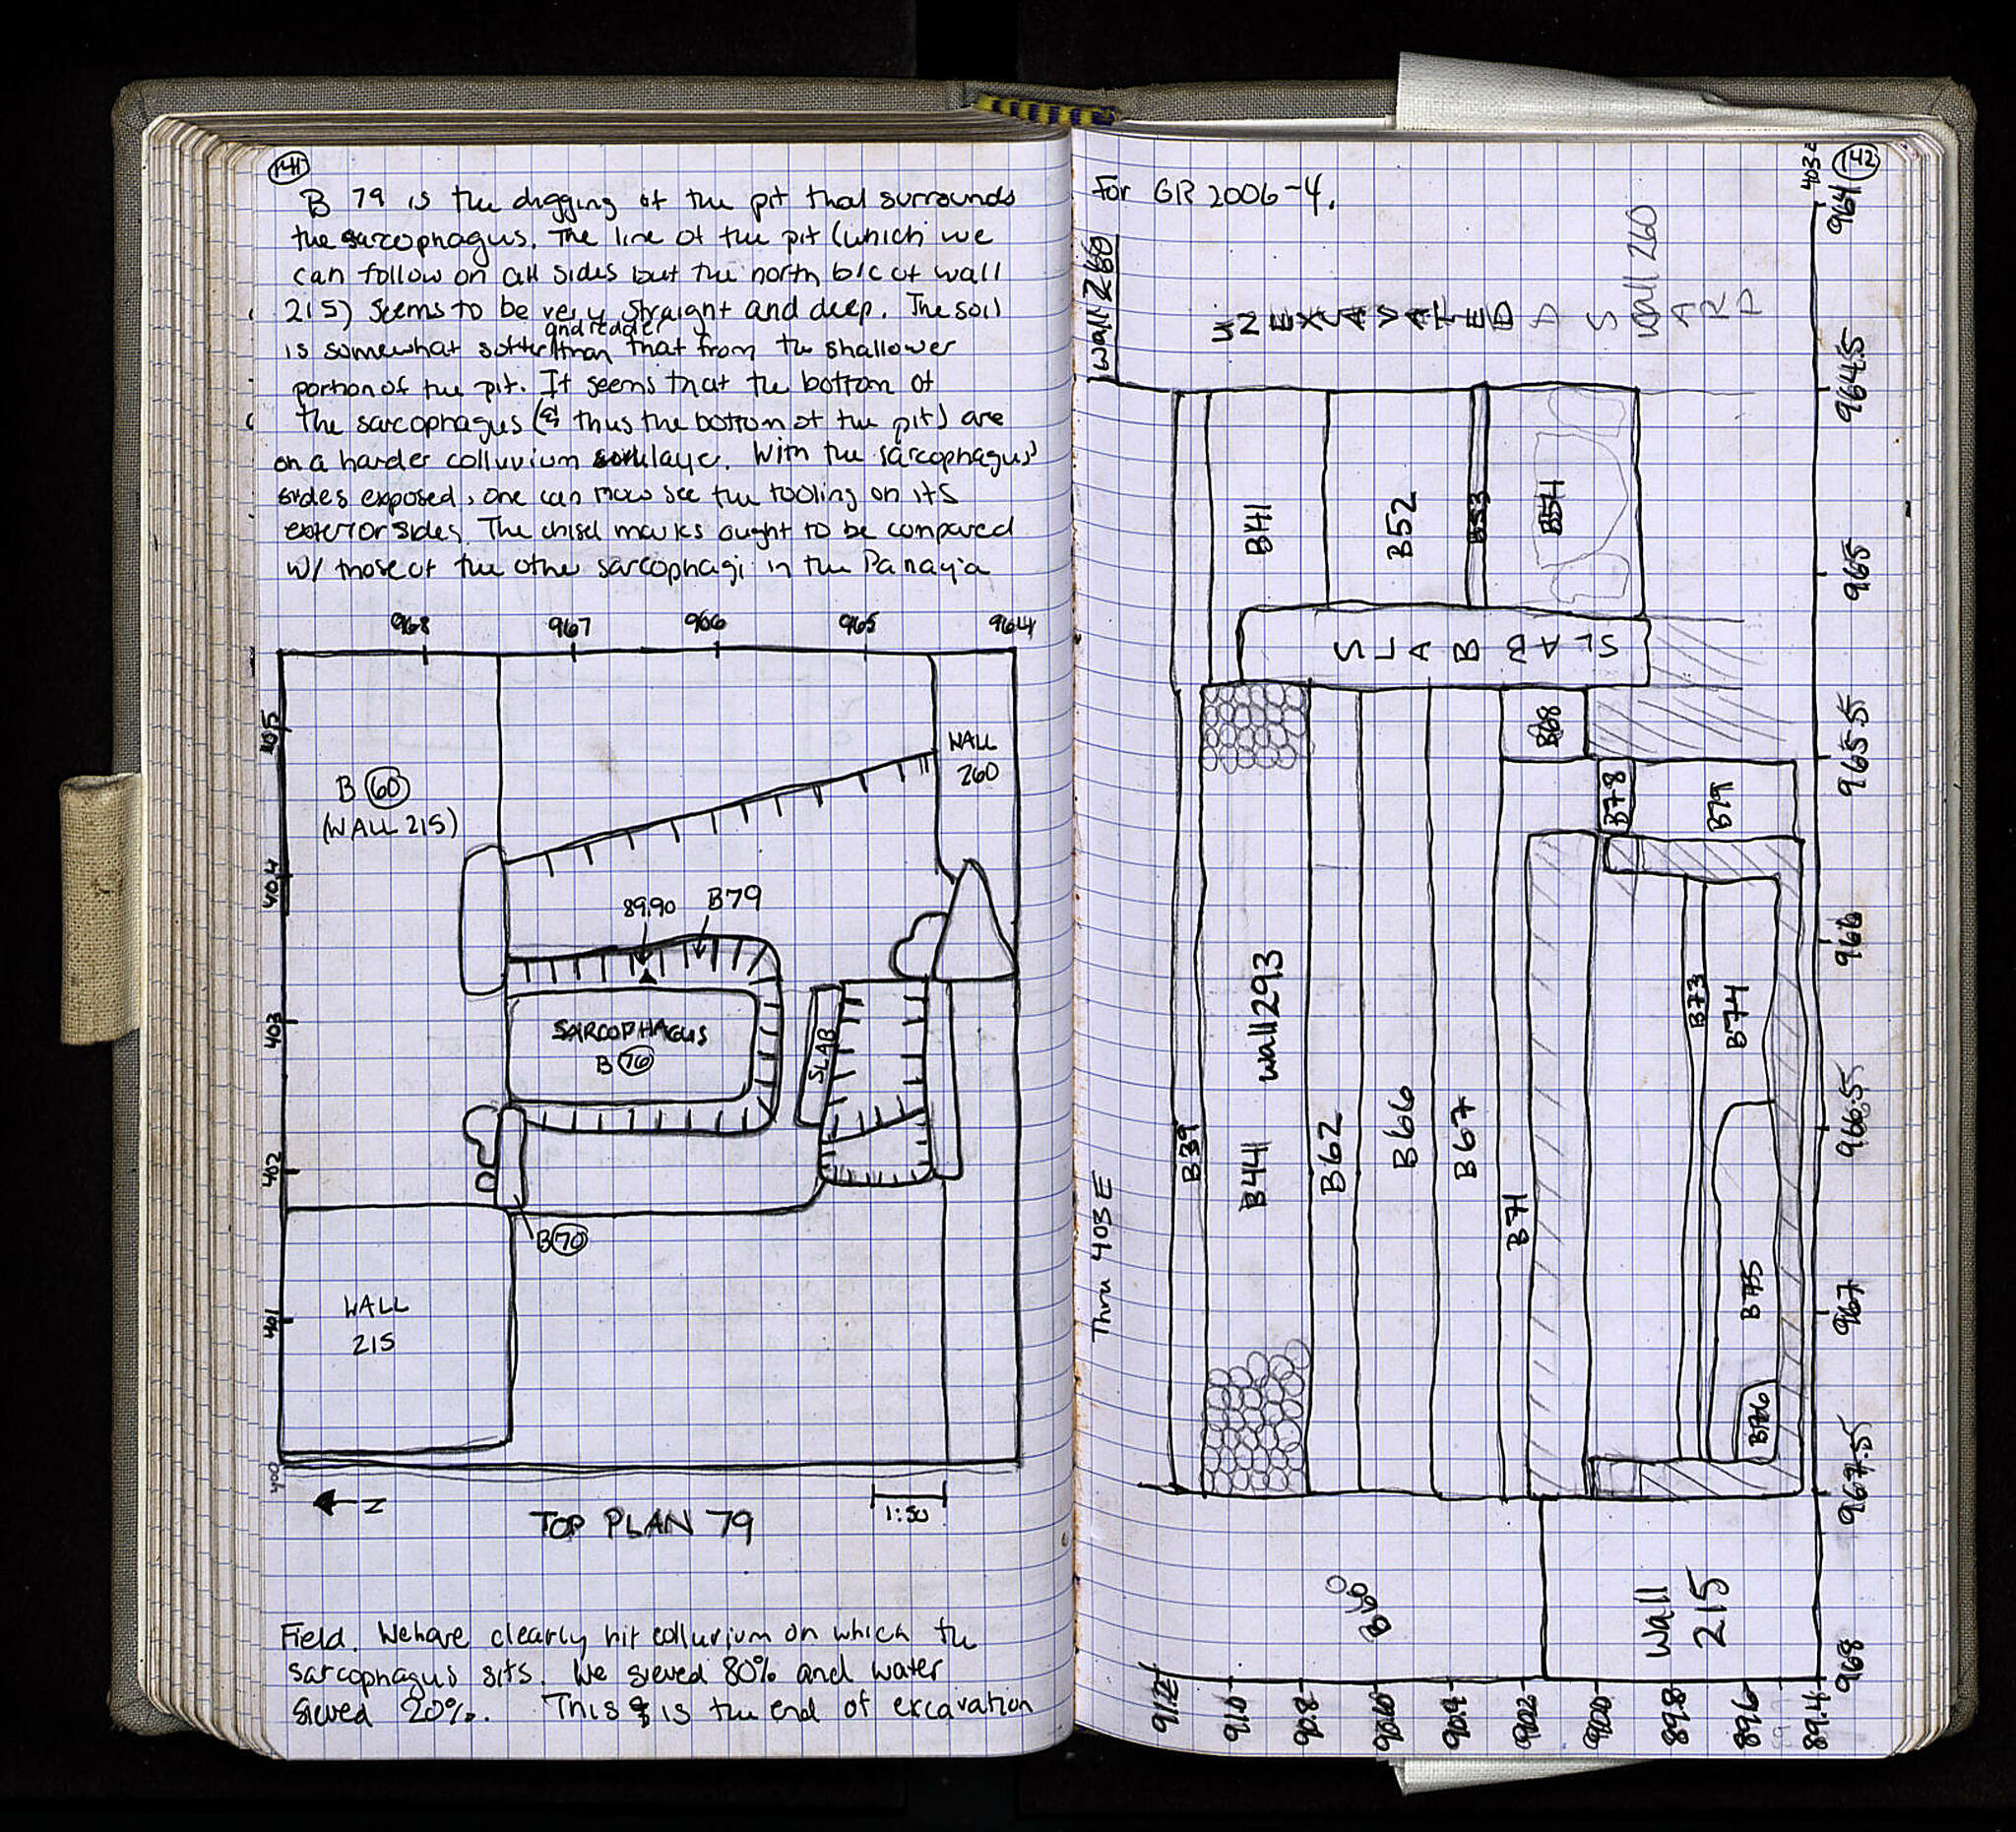 141
B 79 is the digging of the pit that surrounds
the sarcophagus. The line of the pit (which we
can follow on all sides but the north b/c of wall
215) seems to be very straight and deep. The soil
and redder
is somewhat softer than that from the shallower
portion of the pit. It seems that the bottom of
the sarcophagus (& thus the bottom of the pit) are
on a harder colluvium layer. With the sarcophagus'
sides exposed, one can now see the tooling on its
exterior sides. The chisel marks ought to be compared
w/ those of the other sarcophagi in the Panayia
968 967 966 965 964
405
404
403
402
401
400
B 60
(WALL 215)
WALL
260
89.90 B79
SARCOPHAGUS
B 76
SLAB
B 70
WALL
215
N
TOP PLAN 79
1:50
Field. We have clearly hit colluvium on which the
sarcophagus sits. We sieved 80% and water
sieved 20%. This is the end of excavation
142
For GR 2006-4.
Wall 260
UNEXCAVATED
Wall 260
B41
B52
B53
B54
SLAB
SLAB
B68
B78
B79
B39
B44 Wall 293
B62
B66
B67
B71
B73
B74
B75
B76
Thru 403 E
B60
Wall
215
403
964
964.5
965
965.5
966
966.5
967
967.5
968
91.2
91.0
90.8
90.6
90.4
90.2
90.0
89.8
89.6
89.4